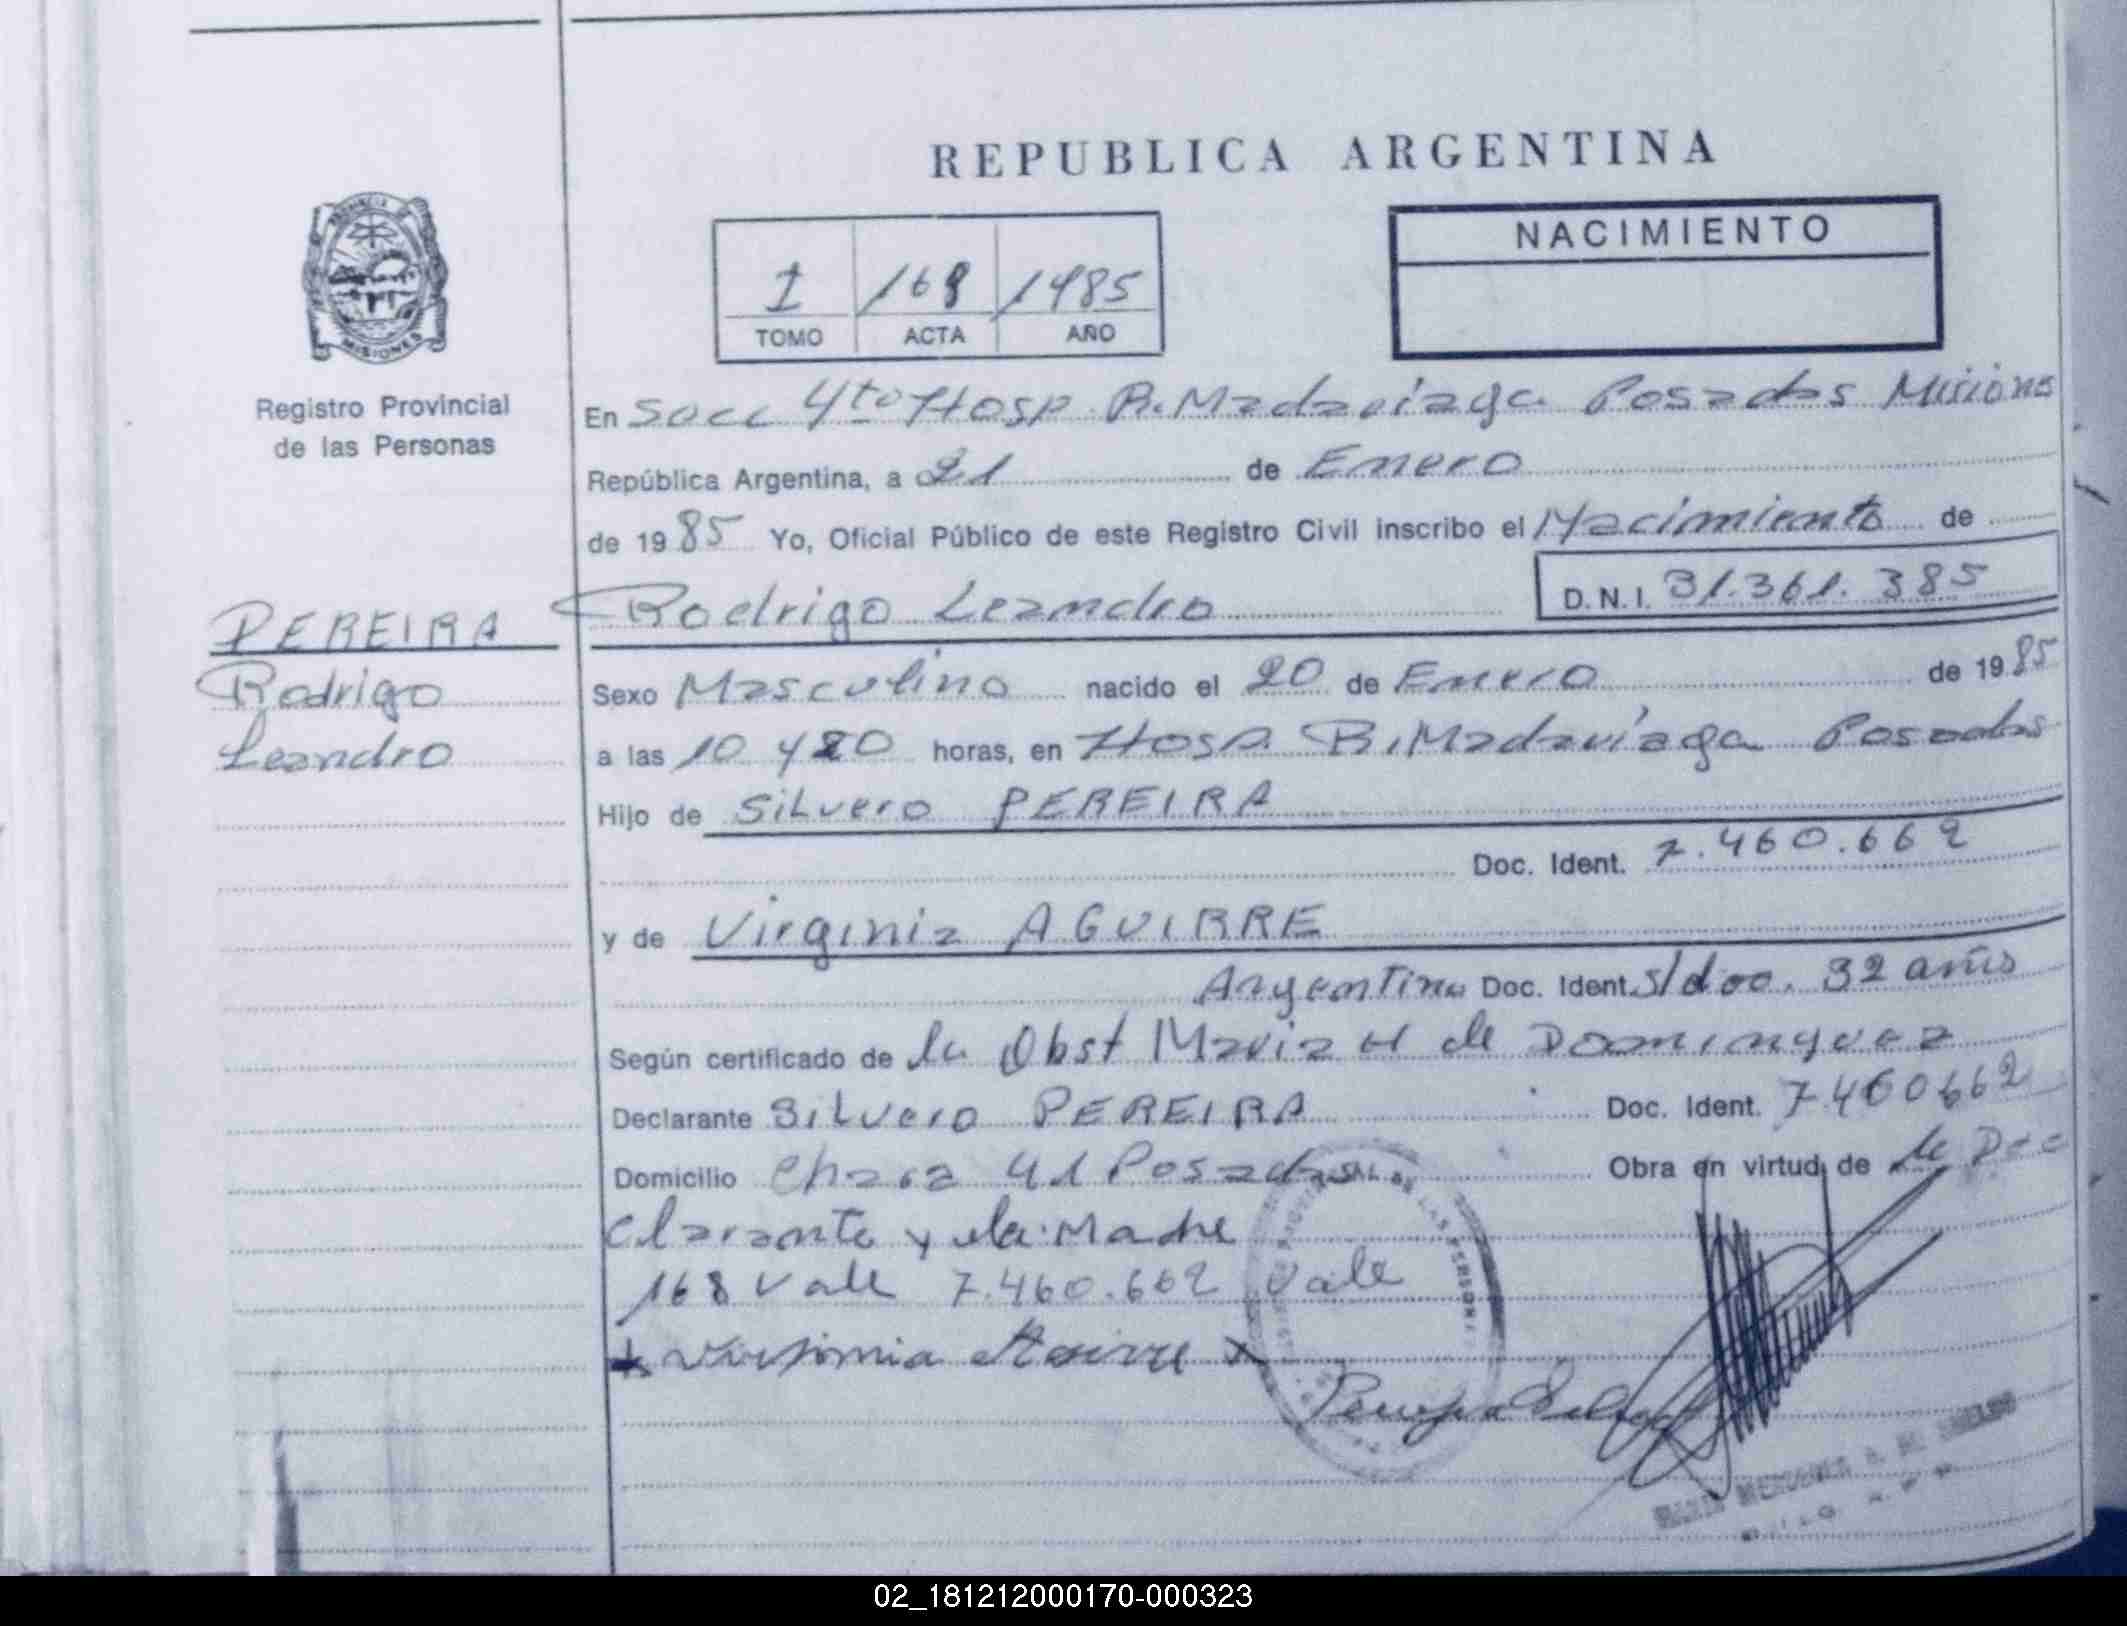 REPUBLICA ARGENTINA
NACIMIENTO
1 168 1985
TOMO ACTA AÑO
PROVINCIA DE
MISIONES
Registro Provincial
de las Personas
En Secc 4to Hosp R. Madariaga Posadas Misiones
República Argentina, a 21 de Enero
de 1985 Yo, Oficial Público de este Registro Civil inscribo el Nacimiento de
Rodrigo Leandro D.N.I. 31.361.385
PEREIRA
Rodrigo
Leandro
Sexo Masculino nacido el 20 de Enero de 1985
a las 10 y 20 horas, en Hosp. R. Madariaga Posadas
Hijo de Silvero PEREIRA
Doc. Ident. 7.460.662
y de Virginia AGUIRRE
Argentina Doc. Ident. s/doc. 32 años
Según certificado de la Obst Maria H de Dominguez
Declarante Silvero PEREIRA Doc. Ident. 7.460662
Domicilio Chacra 41 Posadas Obra en virtud de la Dec
clarante y la Madre
168 Vale 7.460.662 Vale
DE LAS PERSONAS
02_181212000170-000323